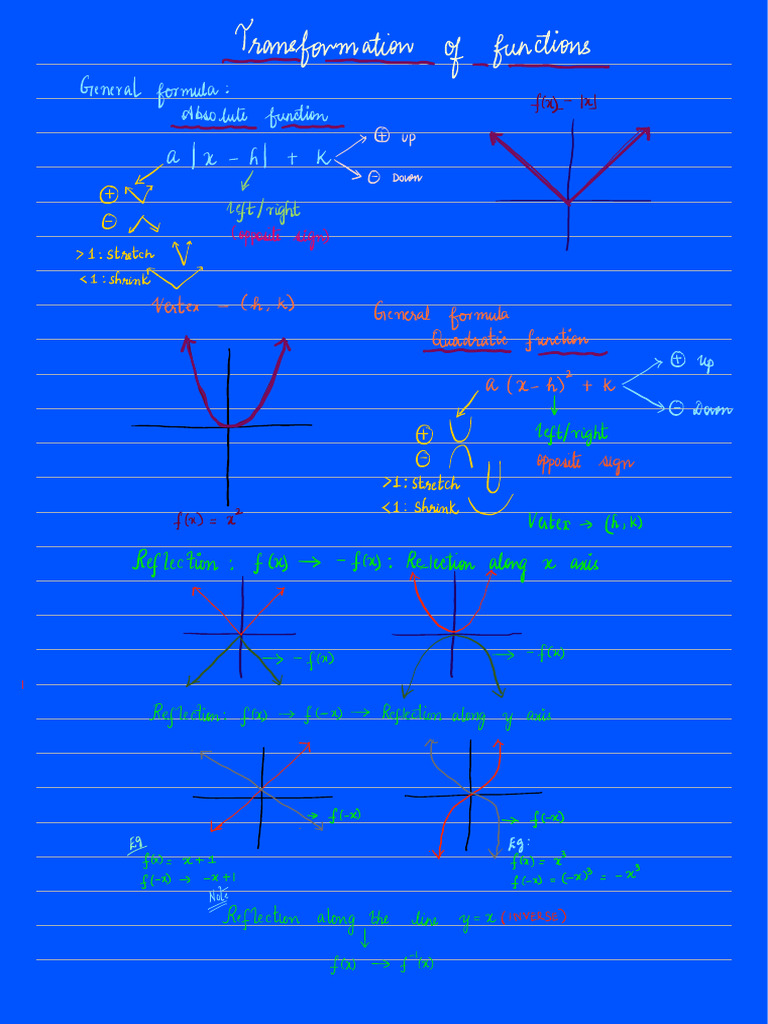 Transformation of functions
General formula:
Absolute function
f(x) = |x|
a |x - h| + k
⊕ up
⊖ Down
⊕
⊖
left/right
(opposite sign)
>1: stretch
<1: shrink
Vertex - (h, k)
General formula
Quadratic function
a (x-h)² + k
⊕ up
⊖ Down
⊕
⊖
left/right
opposite sign
>1: stretch
<1: shrink
Vertex → (h, k)
f(x) = x²
Reflection: f(x) → -f(x): Reflection along x axis
→ -f(x)
→ -f(x)
Reflection: f(x) → f(-x) → Reflection along y axis
→ f(-x)
→ f(-x)
Eg
f(x) = x+1
f(-x) → -x+1
Eg:
f(x) = x³
f(-x) = (-x)³ = -x³
Note
Reflection along the line y=x (INVERSE)
↓
f(x) → f⁻¹(x)